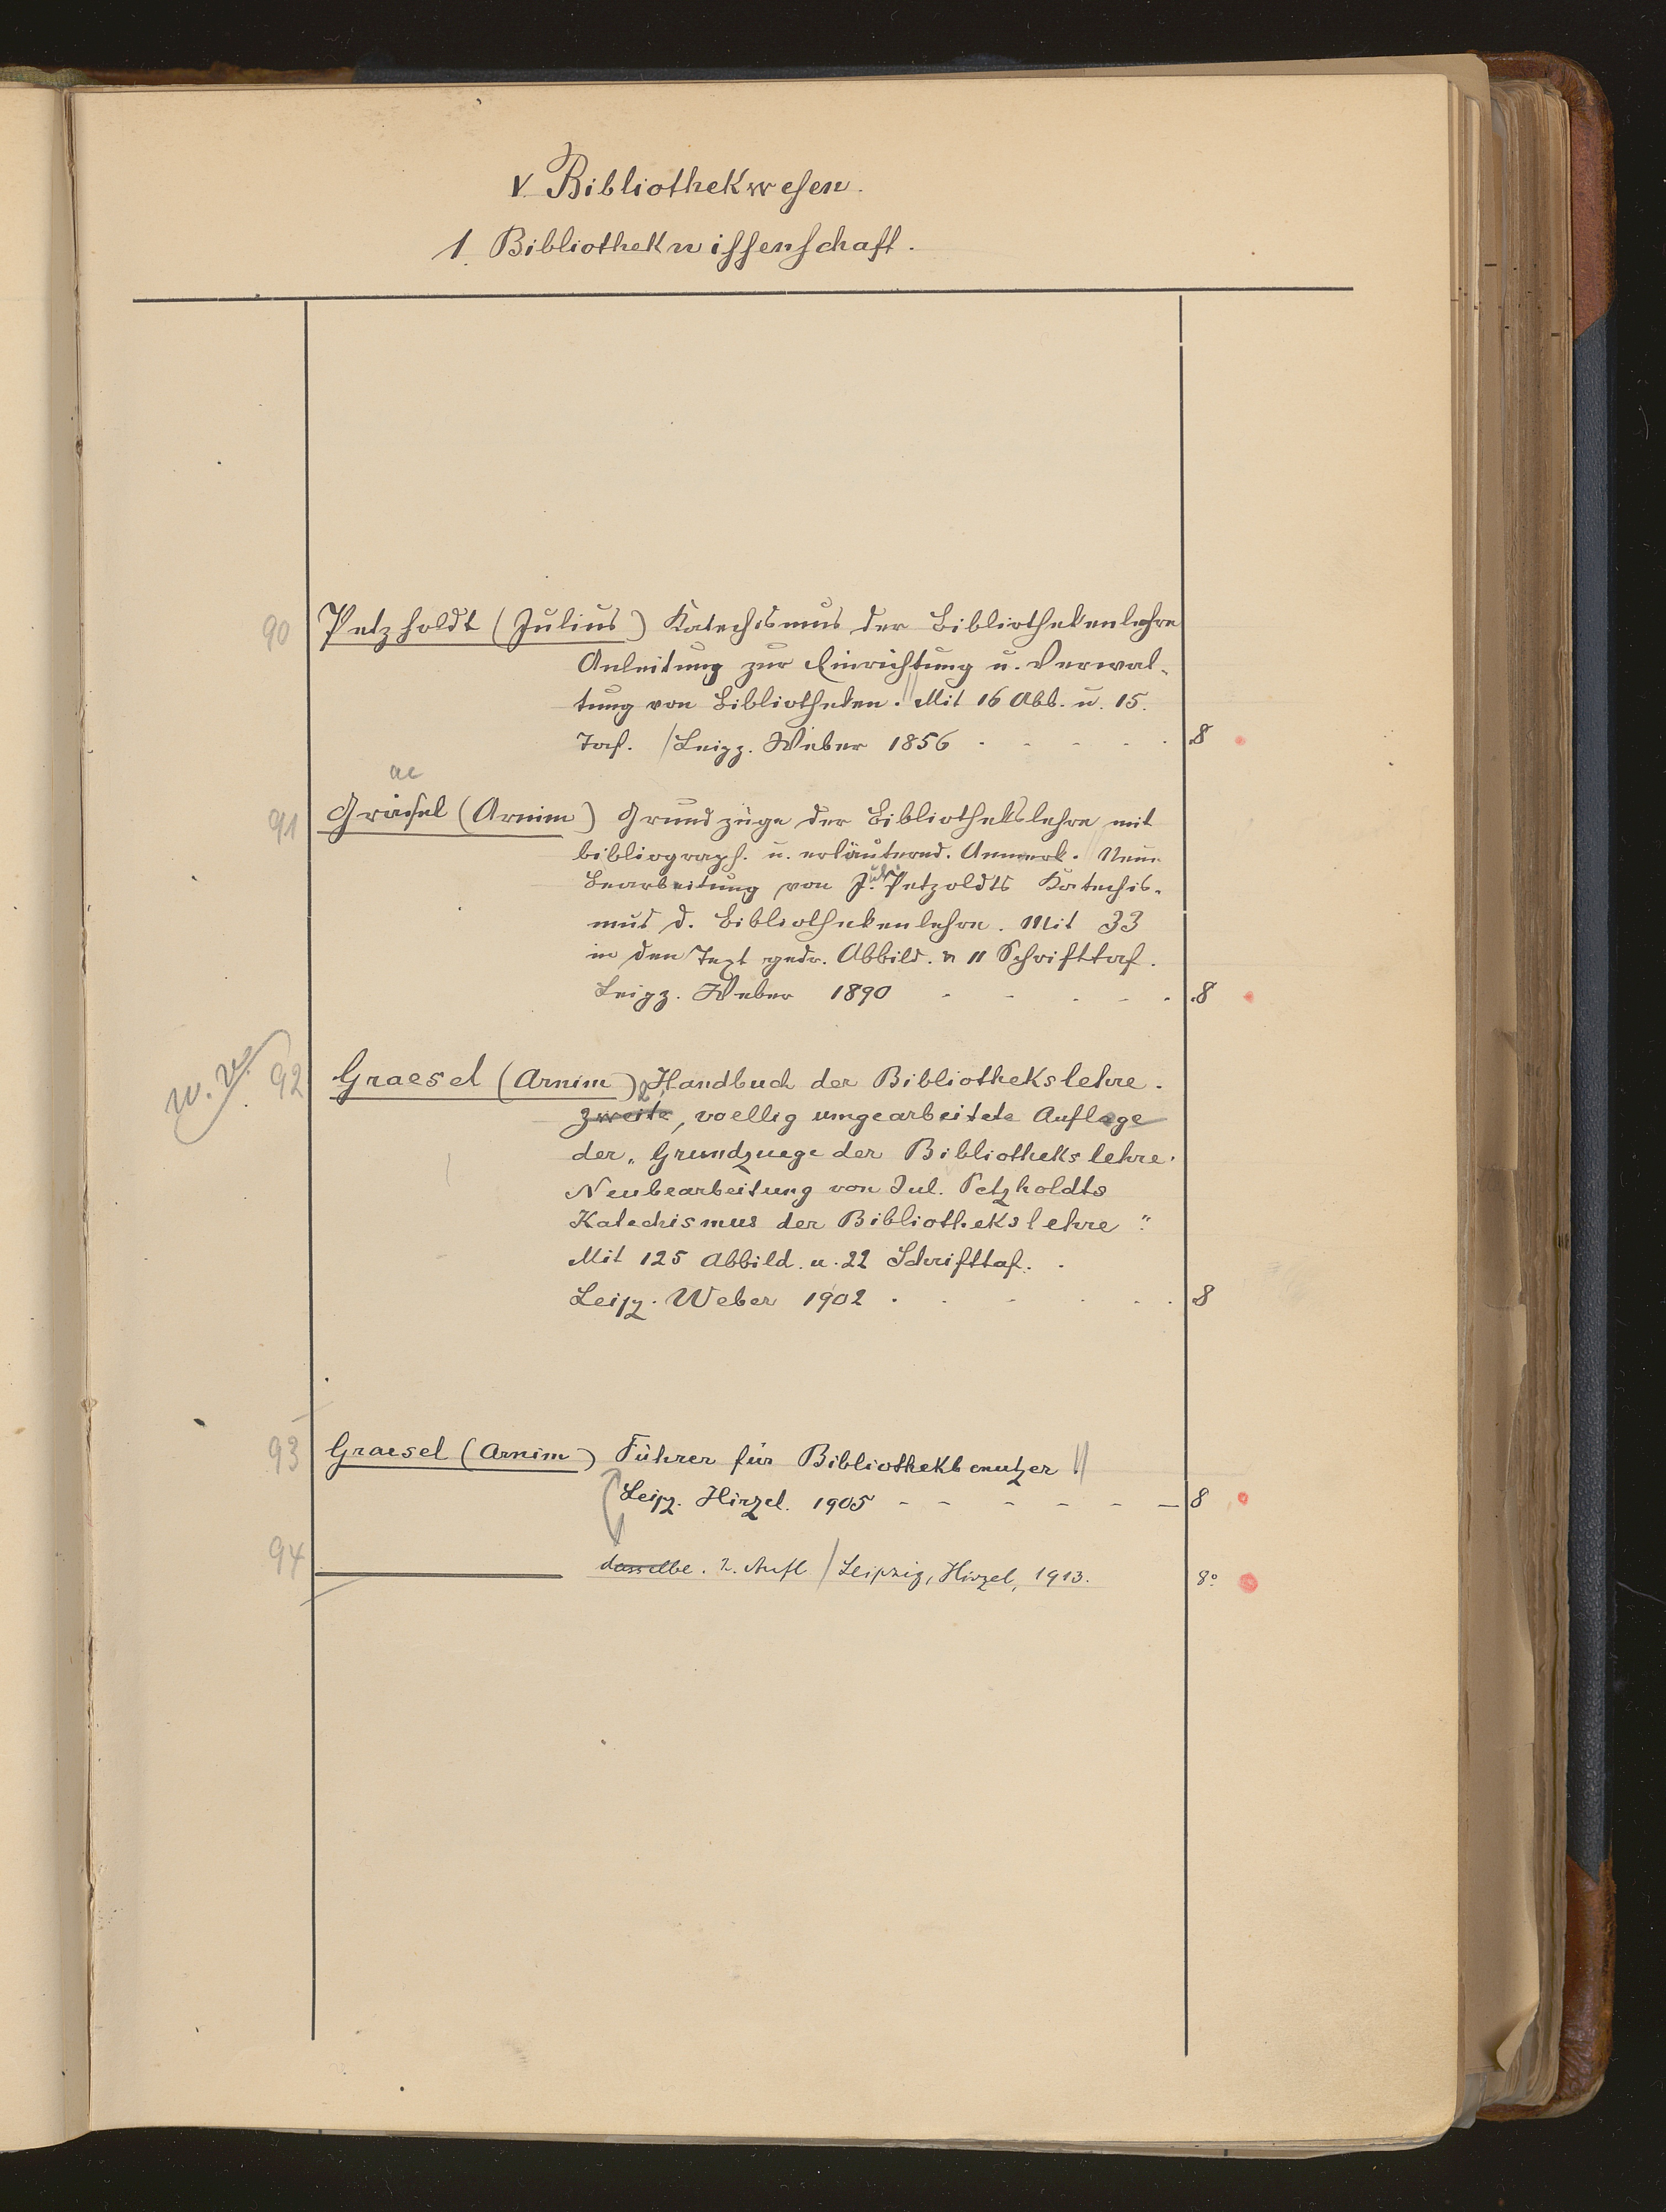 V. Bibliothekwesen.
1. Bibliothekwissenschaft.
90 Petzholdt (Julius) Katechismus der Bibliothekenlehre
Anleitung zur Einrichtung u. Verwal-
tung von Bibliotheken. // Mit 16 Abb. u. 15.
Taf. / Leipz. Weber 1856 - - - - - 8
ae
91 Gräsel (Arnim) Grundzüge der Bibliothekslehre mit
bibliograph. u. erläuternd. Anmerk. Neue
Bearbeitung von Jul. Petzoldts Katechis-
mus d. Bibliothekenlehre. Mit 33
in den Text gedr. Abbild. u 11 Schrifttaf.
Leipz. Weber 1890 - - - - - 8
92 Graesel (Arnim) Handbuch der Bibliothekslehre.
2.
zweite, voellig umgearbeitete Auflage
der „Grundzuege der Bibliothekslehre.
Neubearbeitung von Jul. Petzholdts
Katechismus der Bibliothekslehre "
Mit 125 Abbild. u. 22 Schrifttaf. .
Leipz. Weber 1902 . . - . . . 8
93 Graesel (Arnim) Führer für Bibliothekbenutzer //
Leipz. Hirzel. 1905 - - - - - - 8
94 ——— dasselbe. 2. Aufl / Leipzig, Hirzel, 1913. 8°